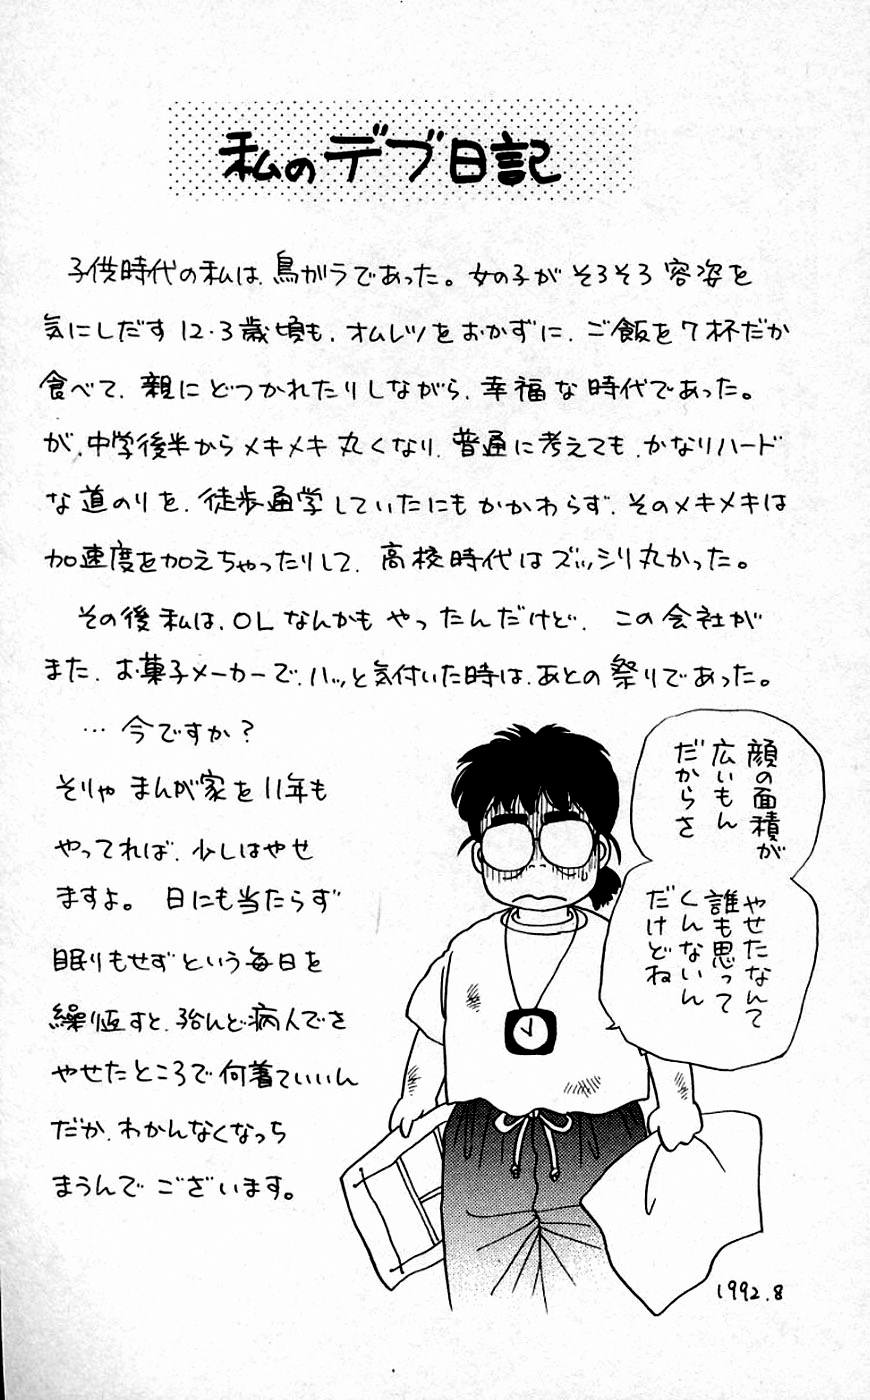 私のデブ日記
子供時代の私は、鳥ガラであった。女の子が そろそろ 容姿を
気にしだす 12・3歳頃も、オムレツをおかずに、ご飯を7杯だか
食べて、親に どつかれたりしながら、幸福な時代であった。
が、中学後半から メキメキ 丸くなり、普通に考えても、かなりハード
な道のりを、徒歩通学していたにもかかわらず、そのメキメキは
加速度を加えちゃったりして、高校時代はズッシリ丸かった。
その後私は、OLなんかも やったんだけど、この会社が
また、お菓子メーカーで、ハッと気付いた時は、あとの祭りであった。
…今ですか?
そりゃ まんが家を 11年も
やってれば、少しはやせ
ますよ。日にも当たらず
眠りもせず という毎日を
繰り返すと、殆んど病人でさ
やせたところで何着ていいん
だか、わかんなくなっち
まうんで ございます。
顔の面積が
広いもん
だからさ
やせたなんて
誰も思って
くんないん
だけどね
1992.8